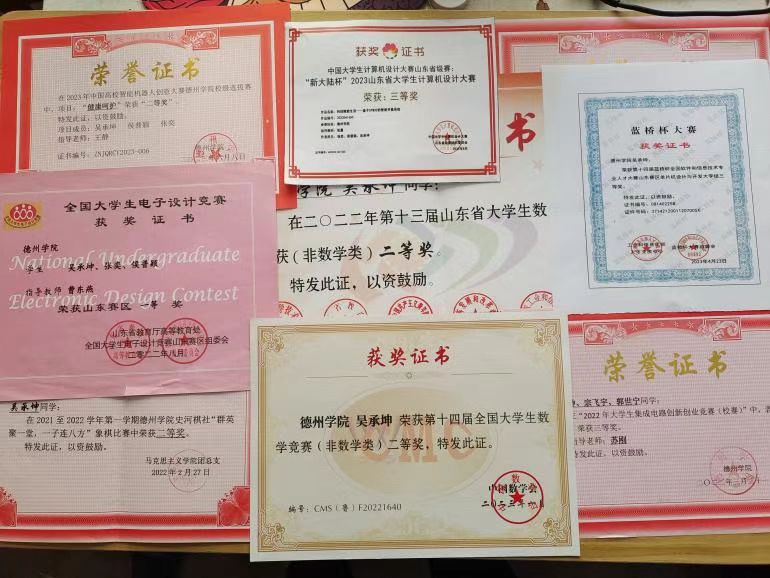 荣誉证书
在2023年中国高校智能机器人创意大赛德州学院校级选拔赛
中，项目：“健康呵护”荣获“二等奖”。
特发此证，以资鼓励。
项目成员：吴承坤 侯普颖 张奕
指导老师：王静
证书编号：ZNJQRCY2023-006
德州学院
获奖证书
中国大学生计算机设计大赛山东省级赛：
“新大陆杯”2023山东省大学生计算机设计大赛
荣获：三等奖
书
蓝桥杯大赛
获奖证书
荣获第十四届蓝桥杯全国软件和信息技术专
业人才大赛山东赛区单片机设计与开发大学组三
等奖。
特发此证，以资鼓励。
2023年4月23日
学院 吴承坤同学：
在二〇二二年第十三届山东省大学生数
获（非数学类）二等奖。
特发此证，以资鼓励。
全国大学生电子设计竞赛
获奖证书
德州学院
National Undergraduate
学生 吴承坤、张奕、侯普颖
Electronic Design Contest
指导教师 曹东燕
荣获山东赛区 一等 奖
山东省教育厅高等教育处
全国大学生电子设计竞赛山东赛区组委会
二〇二二年八月
吴承坤同学：
在2021至2022学年第一学期德州学院史河棋社“群英
聚一堂，一子连八方”象棋比赛中荣获二等奖。
特发此证，以资鼓励。
马克思主义学院团总支
2022年2月27日
获奖证书
德州学院 吴承坤 荣获第十四届全国大学生数
学竞赛（非数学类）二等奖，特发此证。
中国数学会
编号：CMS（鲁）F20221640
荣誉证书
宗飞宇、郭世宁同学：
“2022年大学生集成电路创新创业竞赛（校赛）”中，
荣获三等奖。
指导老师：苏刚
特发此证，以资鼓励。
德州学院